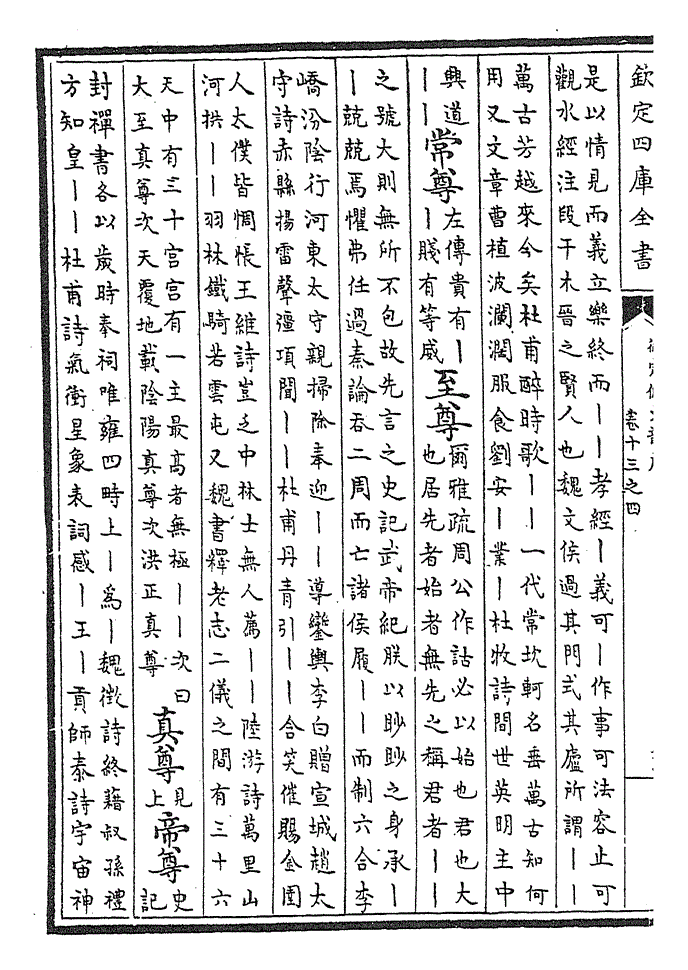 欽定四庫全書
卷十三之四
是以情見而義立樂終而〡〡孝經〡義可〡作事可法容止可
觀水經注段干木晉之賢人也魏文侯過其門式其廬所謂〡〡
萬古芳越來今矣杜甫醉時歌〡〡一代常坎軻名垂萬古知何
用又文章曹植波瀾濶服食劉安〡業〡杜牧詩間世英明主中
興道
〡〡
常尊
左傳貴有〡
〡賤有等威
至尊
爾雅疏周公作詁必以始也君也大
也居先者始者無先之稱君者〡〡
之號大則無所不包故先言之史記武帝紀朕以眇眇之身承〡
〡兢兢焉懼弗任過秦論吞二周而亡諸侯履〡〡而制六合李
嶠汾陰行河東太守親掃除奉迎〡〡導鑾輿李白贈宣城趙太
守詩赤縣揚雷聲彊項聞〡〡杜甫丹青引〡〡含笑催賜金圉
人太僕皆惆悵王維詩豈乏中林士無人薦〡〡陸游詩萬里山
河拱〡〡羽林鐵騎若雲屯又魏書釋老志二儀之間有三十六
天中有三十宮宮有一主最髙者無極〡〡次曰
大至真尊次天覆地載陰陽真尊次洪正真尊
真尊
見
上
帝尊
史
記
封禪書各以歲時奉祠唯雍四時上〡為〡魏徵詩終藉叔孫禮
方知皇〡〡杜甫詩氣衝星象表詞感〡王〡貢師泰詩宇宙神